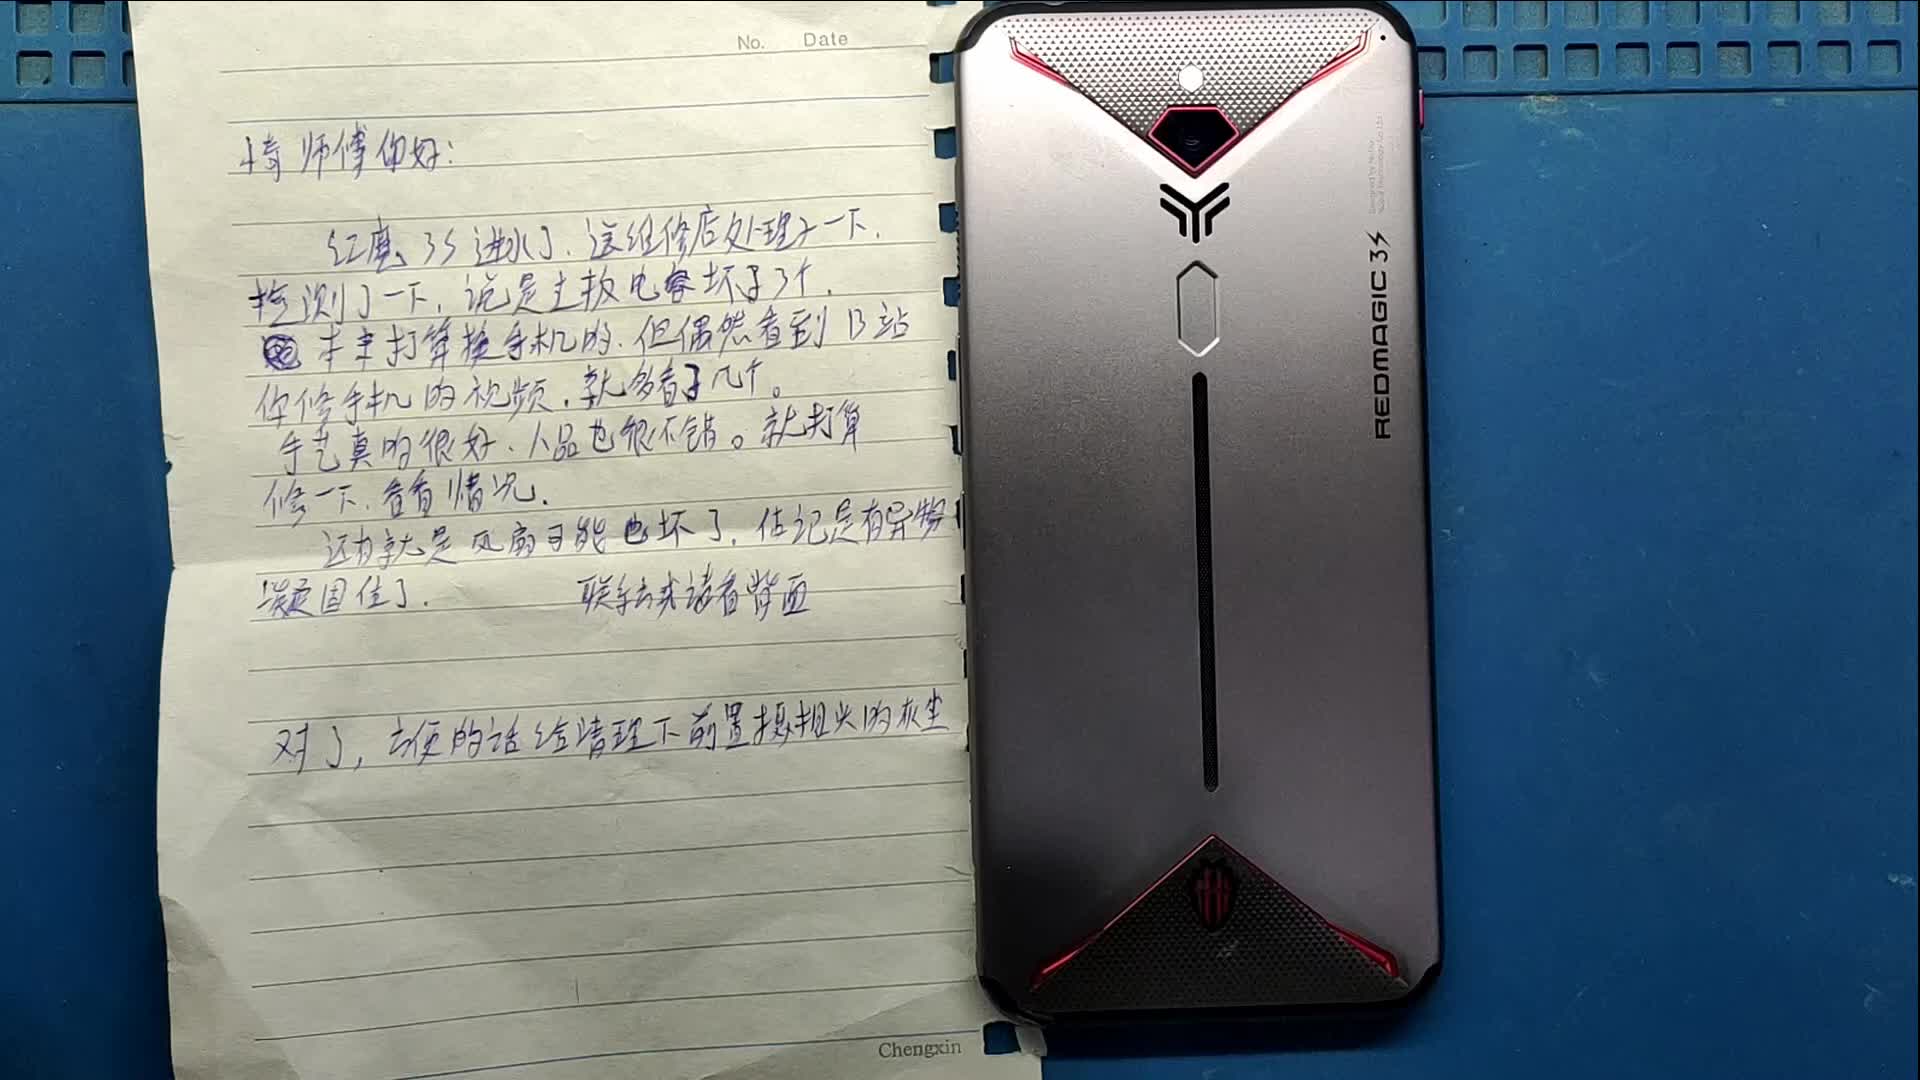 No. Date
师傅你好：
红魔 3S 进水了．送维修店处理了一下．
检测了一下．说是主板电容坏了3个．
本来打算换手机的．但偶然看到 B 站
你修手机的视频．就多看了几个。
手艺真的很好．人品也很不错。就打算
修一下．看看情况．
还有就是风扇可能也坏了．估记是有异物
凝固住了．联系方式请看背面
对了，方便的话给清理下前置摄相头的灰尘
Chengxin
REDMAGIC 3S